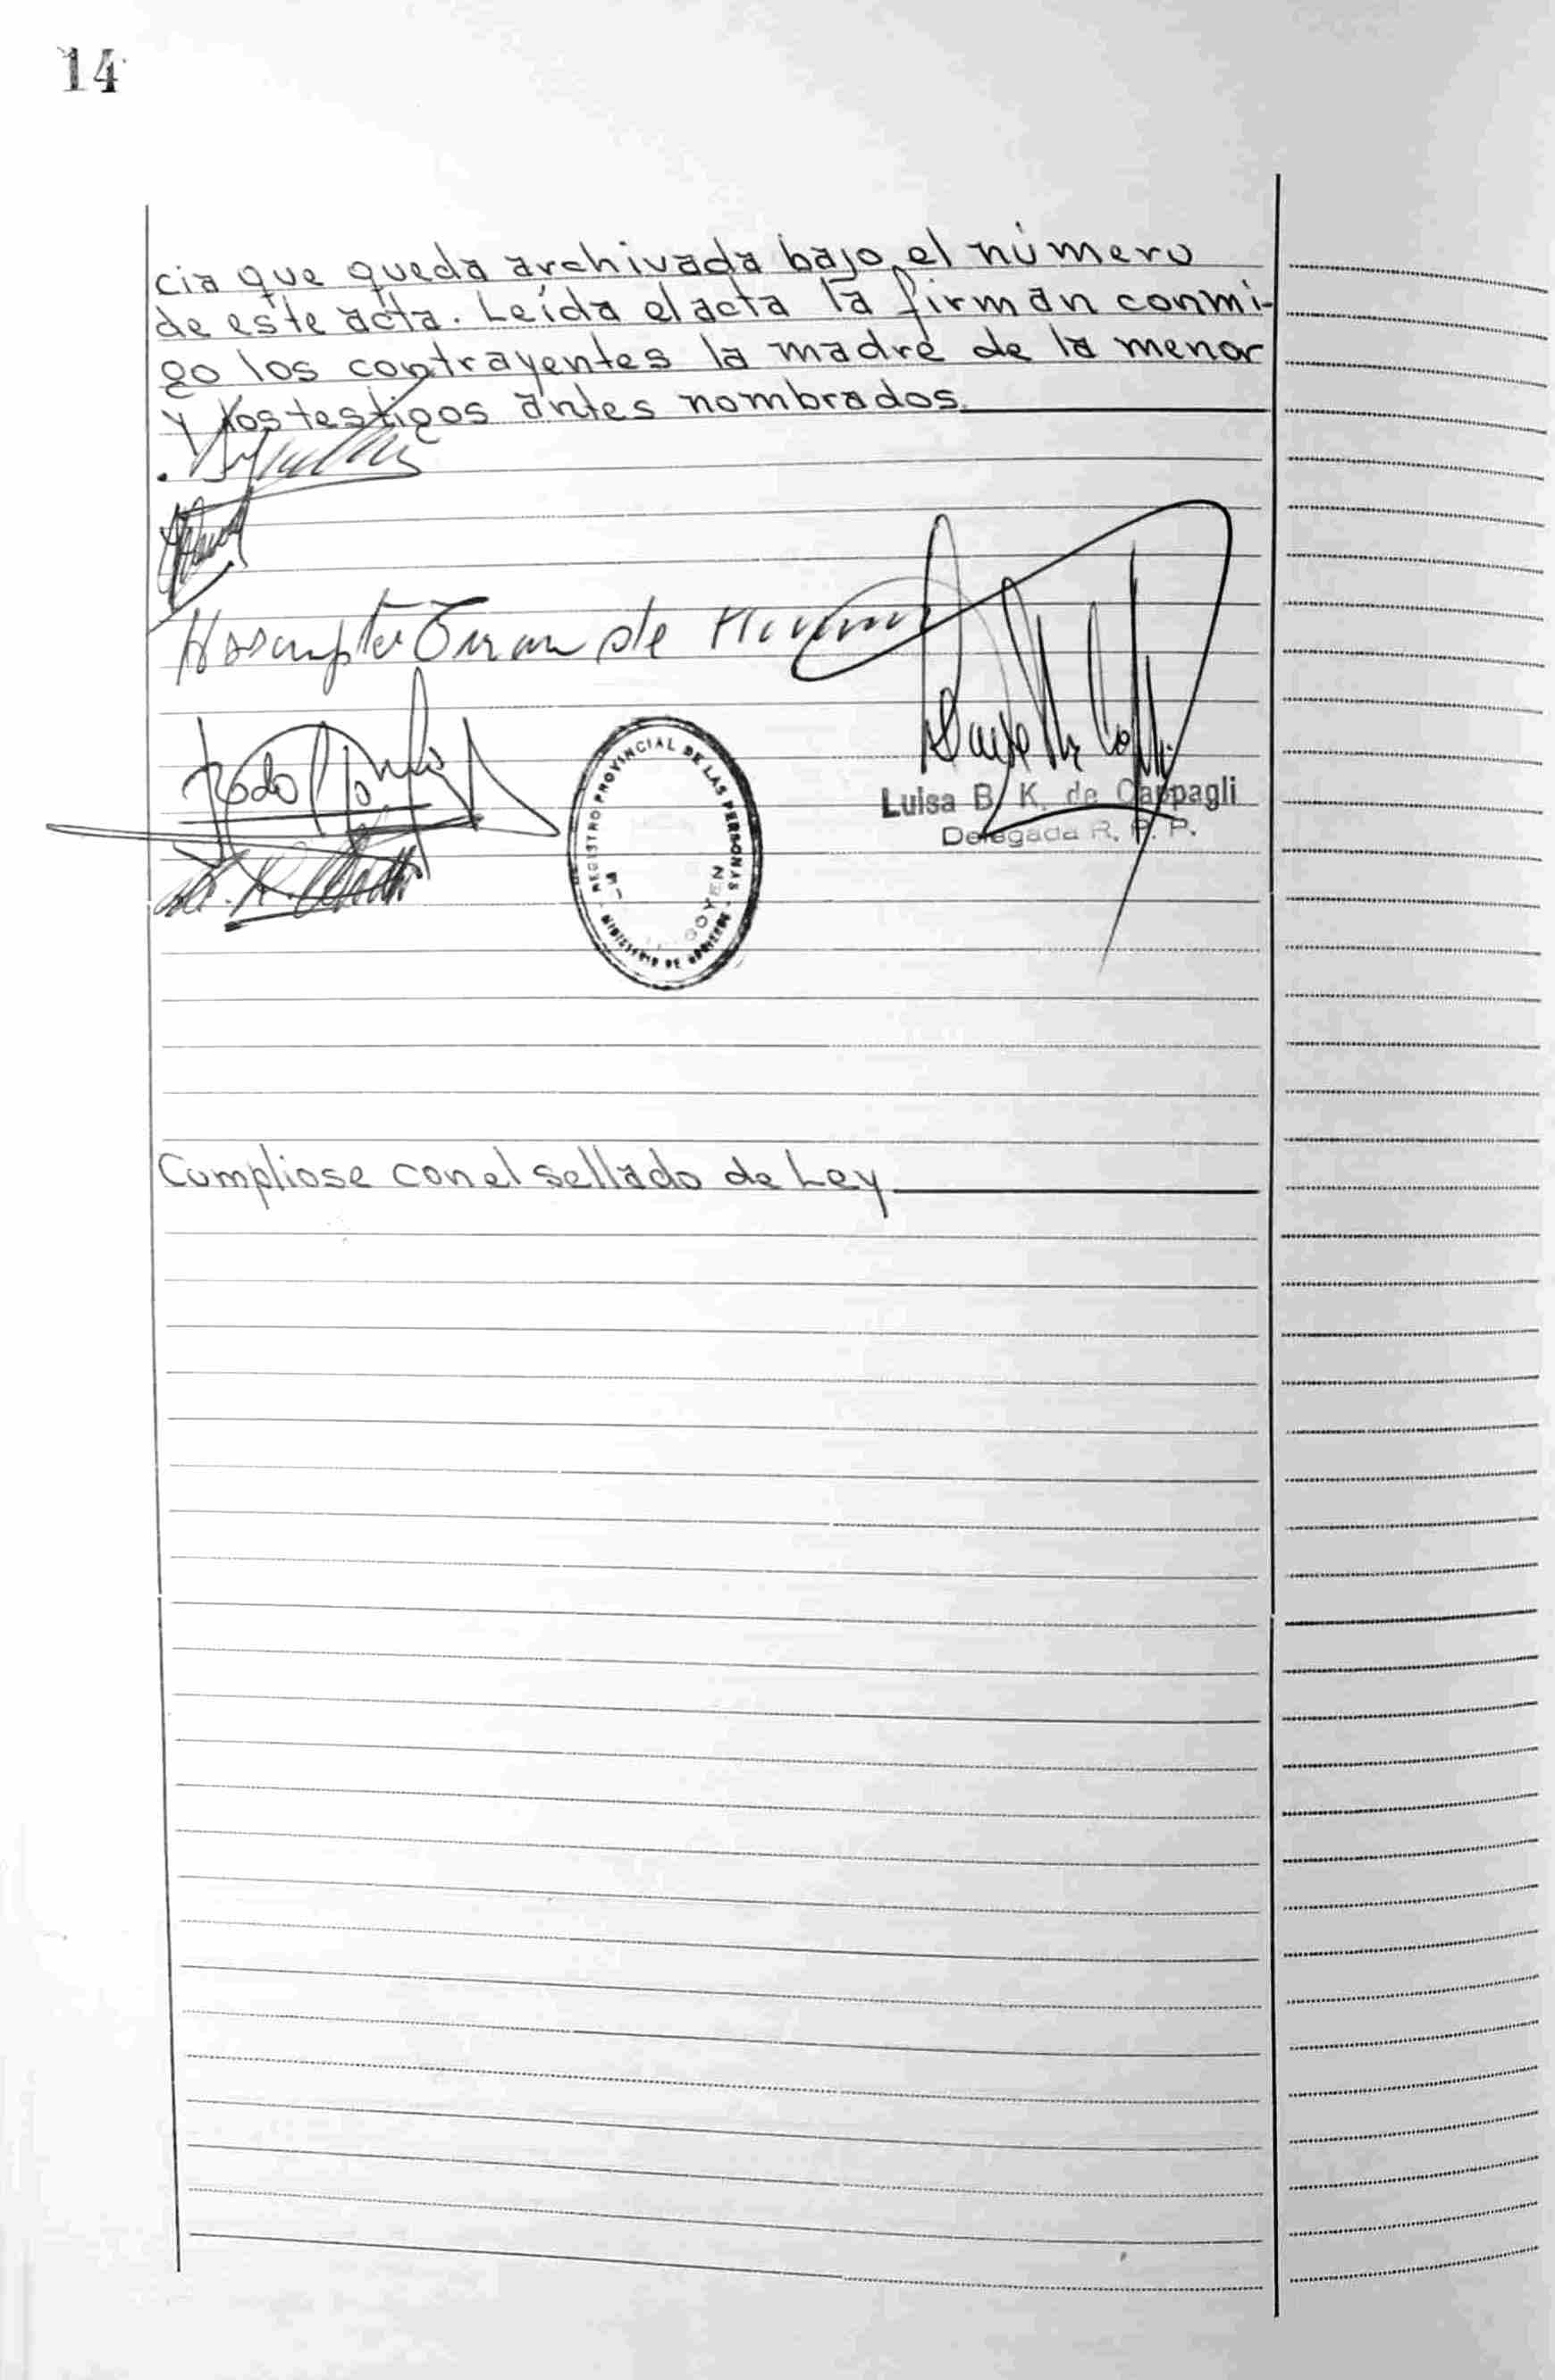 14
cia que queda archivada bajo el número
de este acta. Leída el acta la firman conmi-
go los contrayentes la madre de la menor
y los testigos antes nombrados.
de
REGISTRO PROVINCIAL DE LAS PERSONAS
MINISTERIO DE GOBIERNO
GOYEN
Luisa B. K. de Cappagli
Delegada R. P. P.
Cumpliose con el sellado de Ley